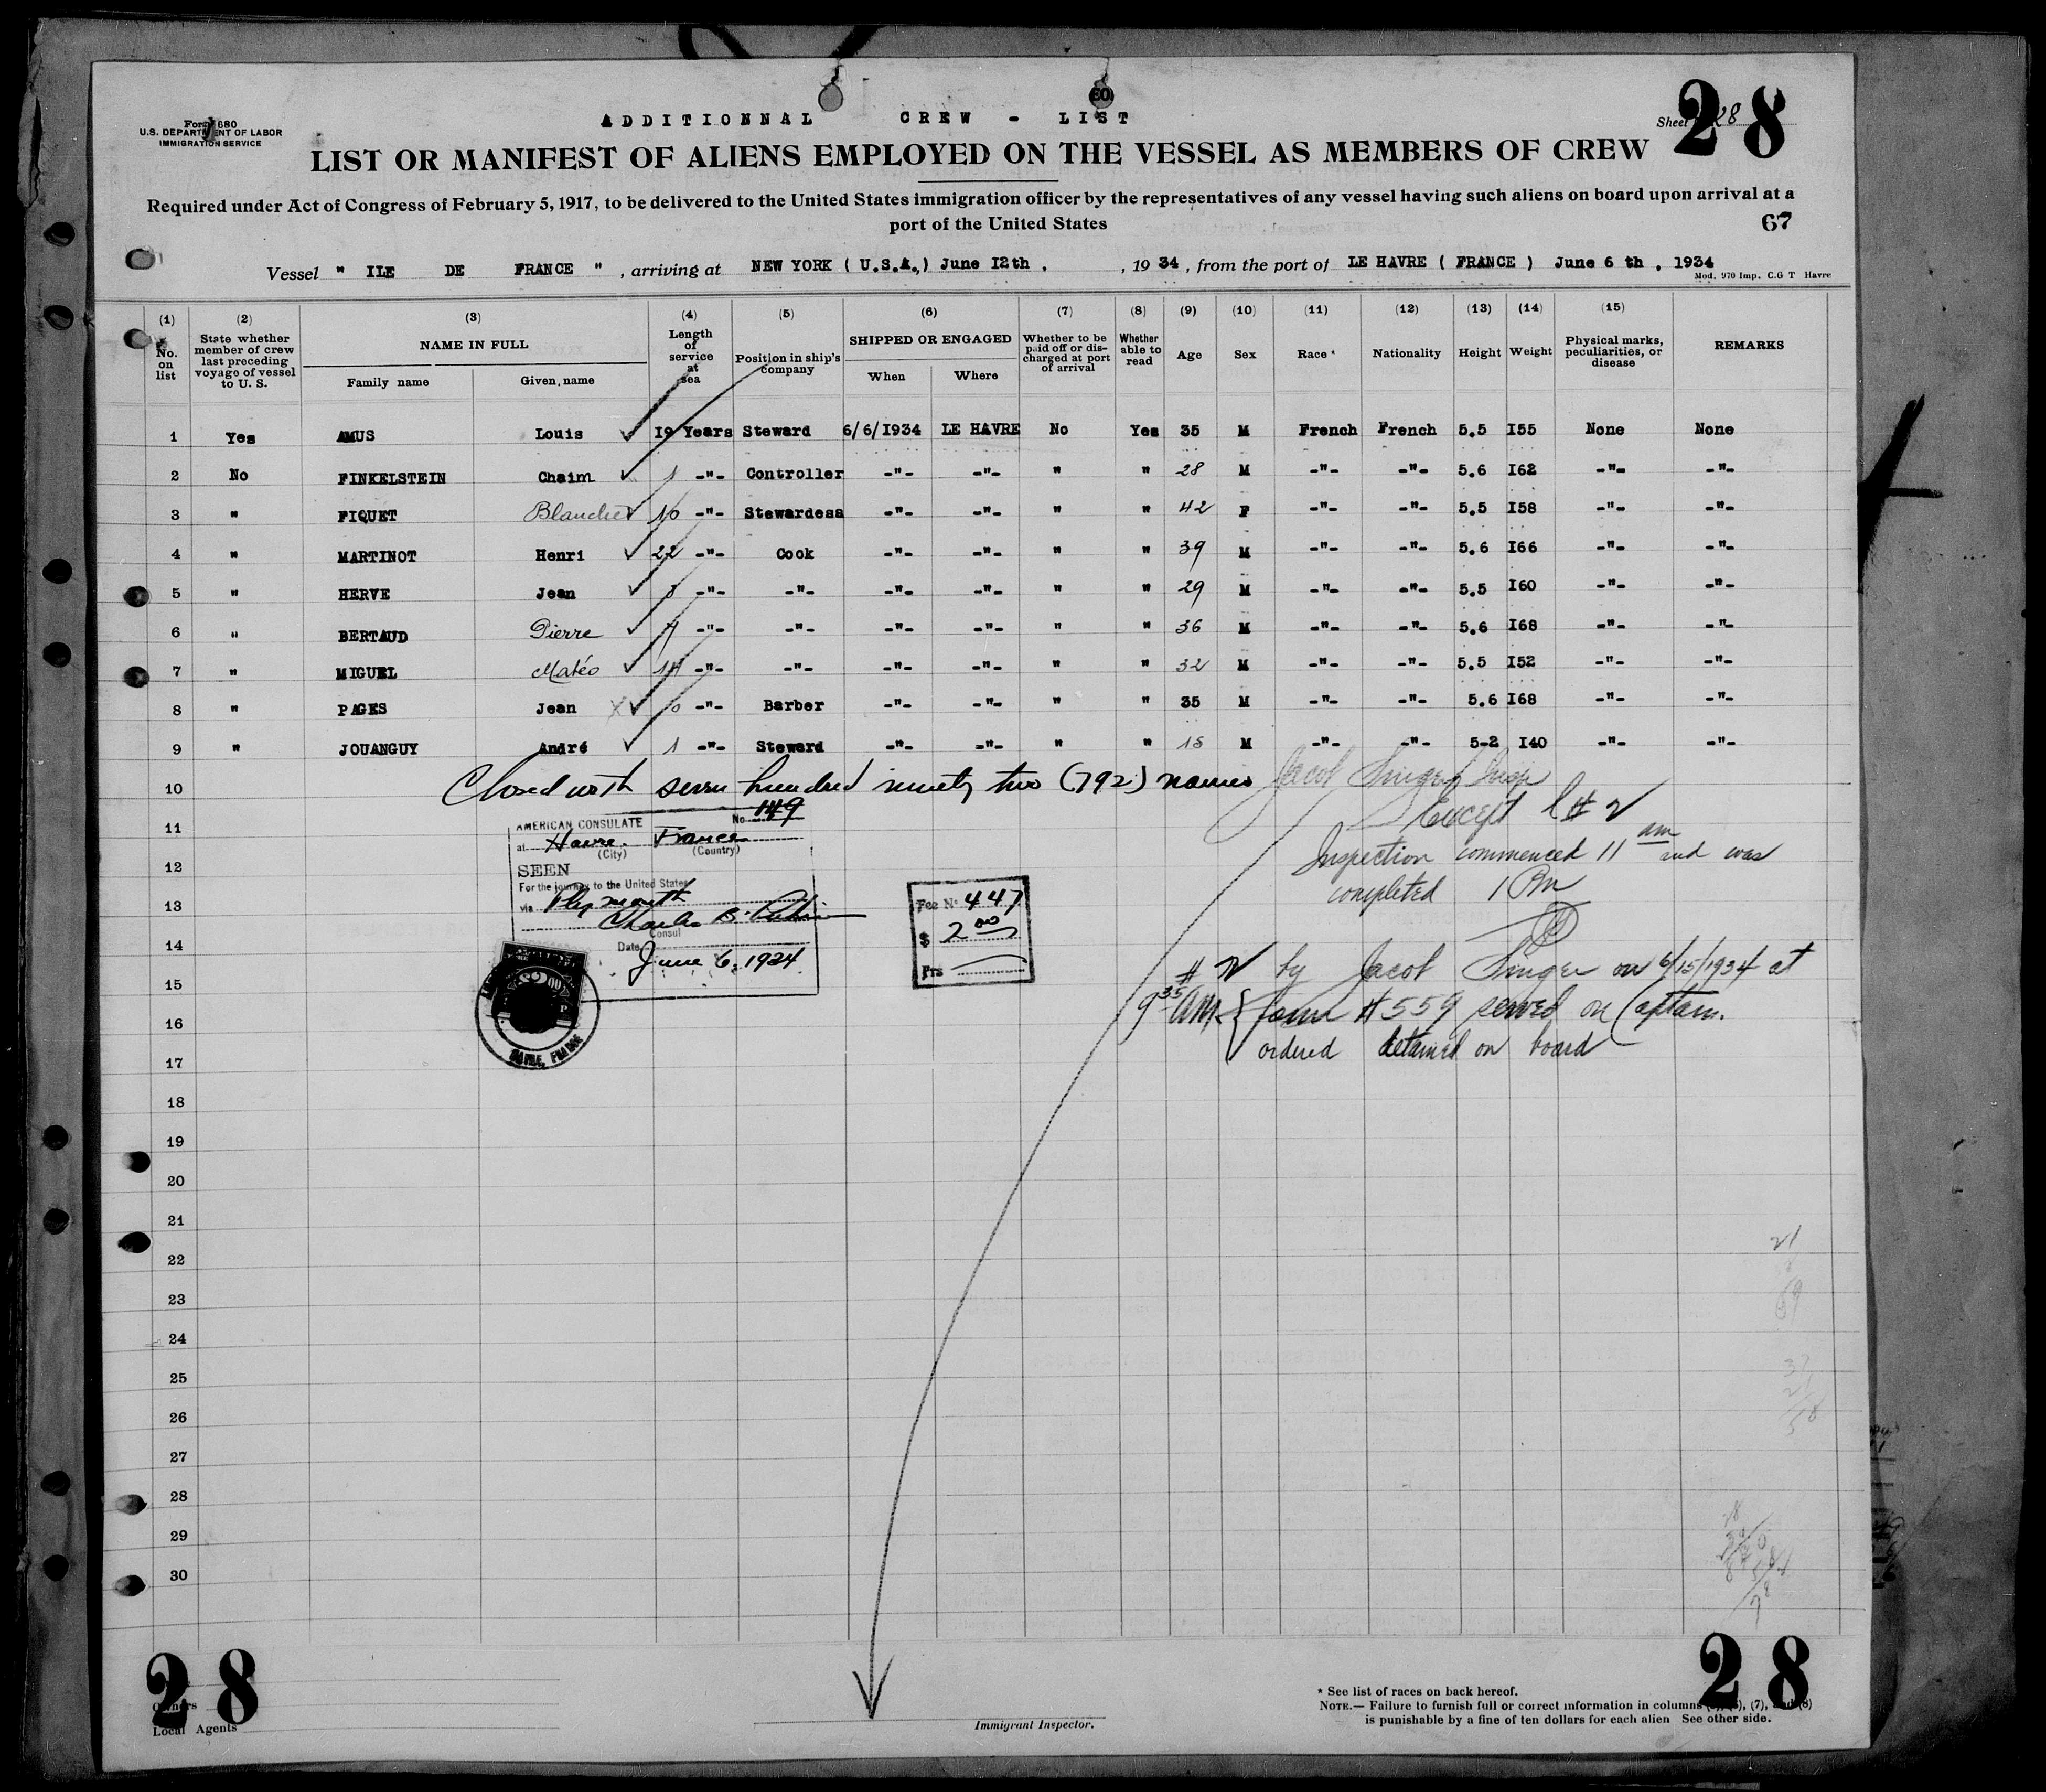 ADDITIONNAL CREW - LIST
Form 680
U.S. DEPARTMENT OF LABOR
IMMIGRATION SERVICE
Sheet 28
28
LIST OR MANIFEST OF ALIENS EMPLOYED ON THE VESSEL AS MEMBERS OF CREW
Required under Act of Congress of February 5, 1917, to be delivered to the United States immigration officer by the representatives of any vessel having such aliens on board upon arrival at a
port of the United States
67
Vessel " ILE DE FRANCE ", arriving at NEW YORK ( U.S.A.,) June 12th , , 19 34, from the port of LE HAVRE ( FRANCE ) June 6 th , 1934
Mod. 970 Imp. C.G T Havre
(1) No. on list (2) State whether member of crew last preceding voyage of vessel to U. S. (3) NAME IN FULL Family name Given name (4) Length of service at sea (5) Position in ship's company (6) SHIPPED OR ENGAGED When Where (7) Whether to be paid off or discharged at port of arrival (8) Whether able to read (9) Age (10) Sex (11) Race * (12) Nationality (13) Height (14) Weight (15) Physical marks, peculiarities, or disease REMARKS
1 Yes AMUS Louis 19 Years Steward 6/6/1934 LE HAVRE No Yes 35 M French French 5.5 I55 None None
2 No FINKELSTEIN Chaim 1 -"- Controller -"- -"- " " 28 M -"- -"- 5.6 I62 -"- -"-
3 " FIQUET Blanche 10 -"- Stewardess -"- -"- " " 42 F -"- -"- 5.5 I58 -"- -"-
4 " MARTINOT Henri 22 -"- Cook -"- -"- " " 39 M -"- -"- 5.6 I66 -"- -"-
5 " HERVE Jean -"- -"- -"- -"- " " 29 M -"- -"- 5.5 I60 -"- -"-
6 " BERTAUD Pierre -"- -"- -"- -"- " " 36 M -"- -"- 5.6 I68 -"- -"-
7 " MIGUEL Matéo 14 -"- -"- -"- -"- " " 32 M -"- -"- 5.5 I52 -"- -"-
8 " PAGES Jean -"- Barber -"- -"- " " 35 M -"- -"- 5.6 I68 -"- -"-
9 " JOUANGUY André 1 -"- Steward -"- -"- " " M -"- -"- 5-2 I40 -"- -"-
10 Closed with seven hundred ninety two (792) names Jacob Singer Insp
Except l # 2
11
AMERICAN CONSULATE No 149
at Havre. France
(City) (Country)
Inspection commenced 11 am and was
12
SEEN
For the journey to the United States
completed 1 Pm
13
via Plymouth
Charles B.
Consul
Fee No 447
$ 2 00
Frs
14
Date June 6, 1934
# 2 by Jacob Singer on 6/15/1934 at
15
9 35 am. form # 559 served on Captain.
16
HAVRE, FRANCE
ordered detained on board
17
18
19
20
21
22
23
24
25
26
27
28
29
30
28
28
Owners
Local Agents
Immigrant Inspector.
* See list of races on back hereof.
NOTE.— Failure to furnish full or correct information in columns (7), and (8)
is punishable by a fine of ten dollars for each alien See other side.